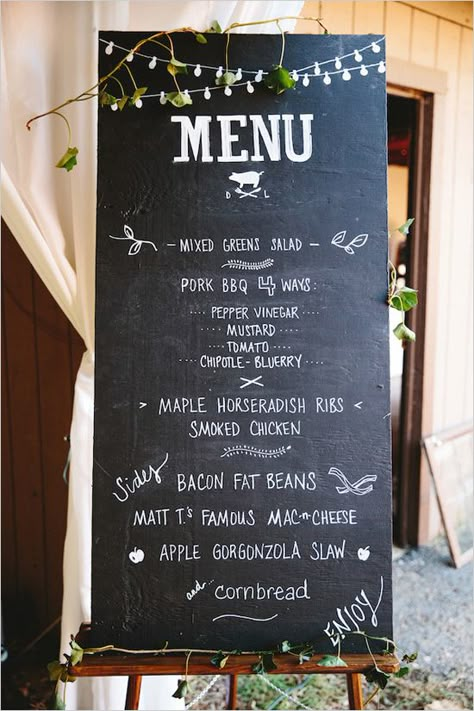 MENU
D L
- MIXED GREENS SALAD -
PORK BBQ 4 WAYS:
.... PEPPER VINEGAR ....
.... MUSTARD ....
.... TOMATO ....
.... CHIPOTLE - BLUERRY ....
> MAPLE HORSERADISH RIBS <
SMOKED CHICKEN
Sides
BACON FAT BEANS
MATT T.'S FAMOUS MAC-n-CHEESE
APPLE GORGONZOLA SLAW
and... cornbread
ENJOY